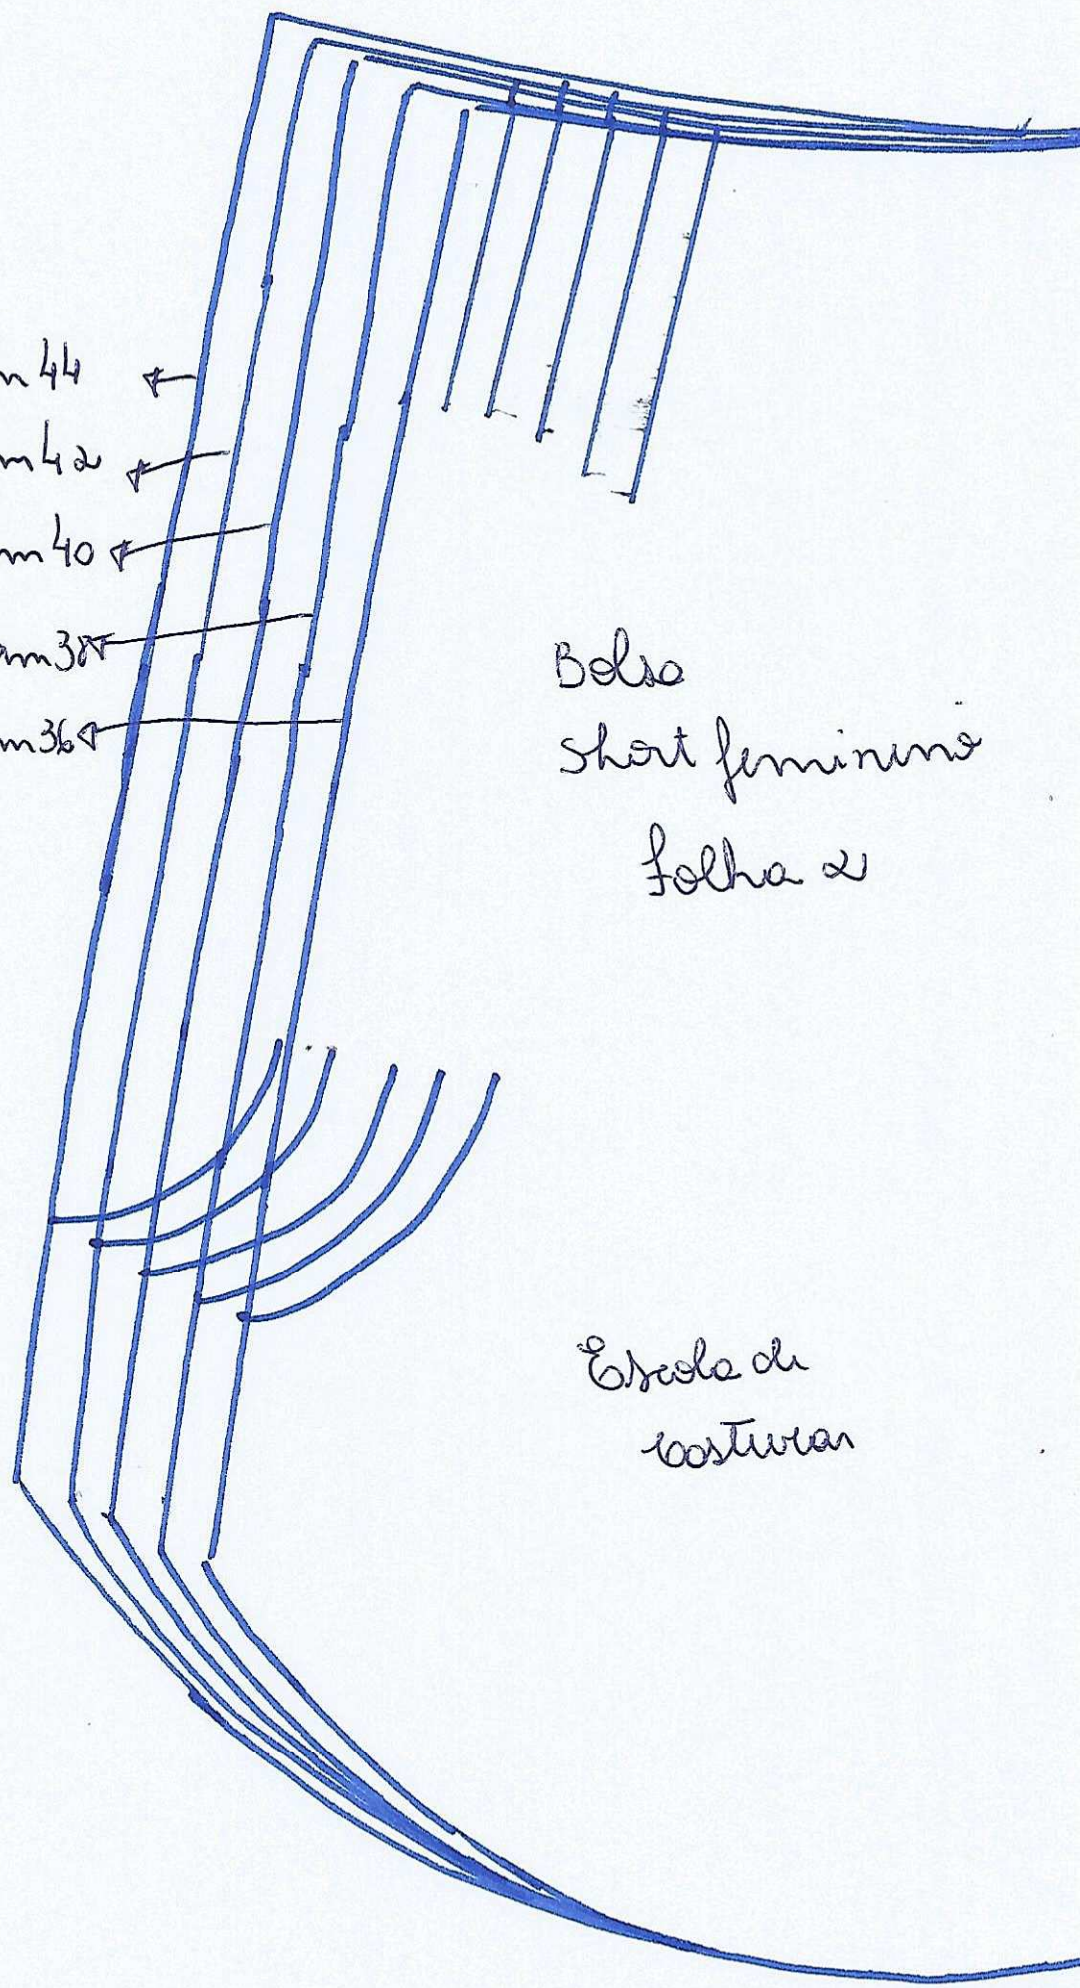 m 44
m 42
m 40
am 38
m 36
Bolso
Short feminino
folha 2
Escola de
costuras